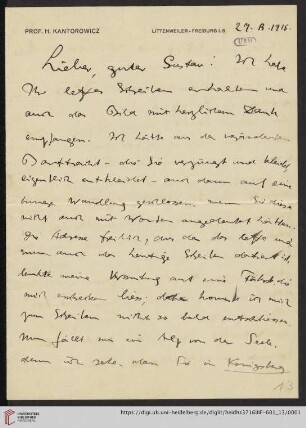 PROF. H. KANTOROWICZ
LITTENWEILER-FREIBURG I.B.
Lieber, guter Gustav! Ich habe
Ihr letztes Schreiben erhalten und
auch das Bild mit herzlichem Dank
empfangen. Ich hätte aus der veränderten
Barttracht - die Sie verjüngt und
eigentlich - auch dann auf eine
innere Wandlung geschlossen, wenn Sie diese
nicht auch mit Worten angedeutet hätten.
Die Adresse freilich, aus der das letzte und
nun auch das heutige Schreiben
meine auf eine
mich liess; daher konnte ich mich
zum Schreiben nicht so bald entschliessen.
Nun fällt mir ein Alp von der Seele,
denn ich sehe, dass Sie in Königsberg
13
UNIVERSITÄTS-
BIBLIOTHEK
HEIDELBERG
https://digi.ub.uni-heidelberg.de/diglit/heidhs3716IIIF-601_13/0001